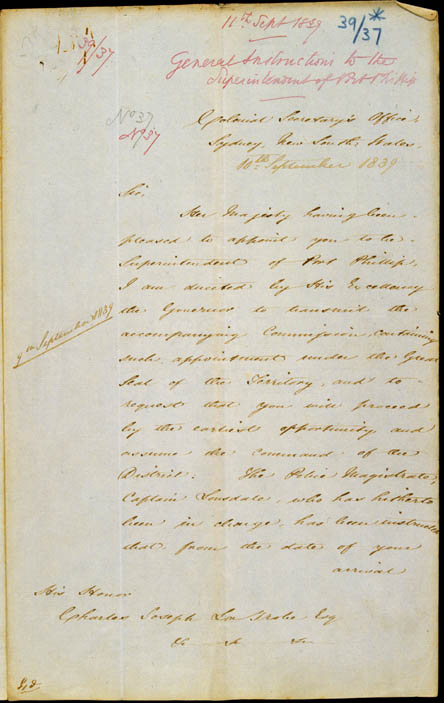 11th Sept 1839
39/37 *
39/37
General Instructions to the
Superintendent of Port Phillip
No 37
No 37
Colonial Secretary's Office
Sydney, New South Wales.
10th September 1839
Sir,
Her Majesty having been
pleased to appoint you to be
Superintendent of Port Phillip,
I am directed by His Excellency
the Governor to transmit the
accompanying Commission, containing
9th September 1839
such appointment under the Great
Seal of the Territory, and to
request that you will proceed
by the earliest opportunity and
assume the command of the
District: The Police Magistrate,
Captain Lonsdale, who has hitherto
been in charge, has been instructed
that from the date of your
arrival
His Honor
Charles Joseph La Trobe Esq
&c &c &c